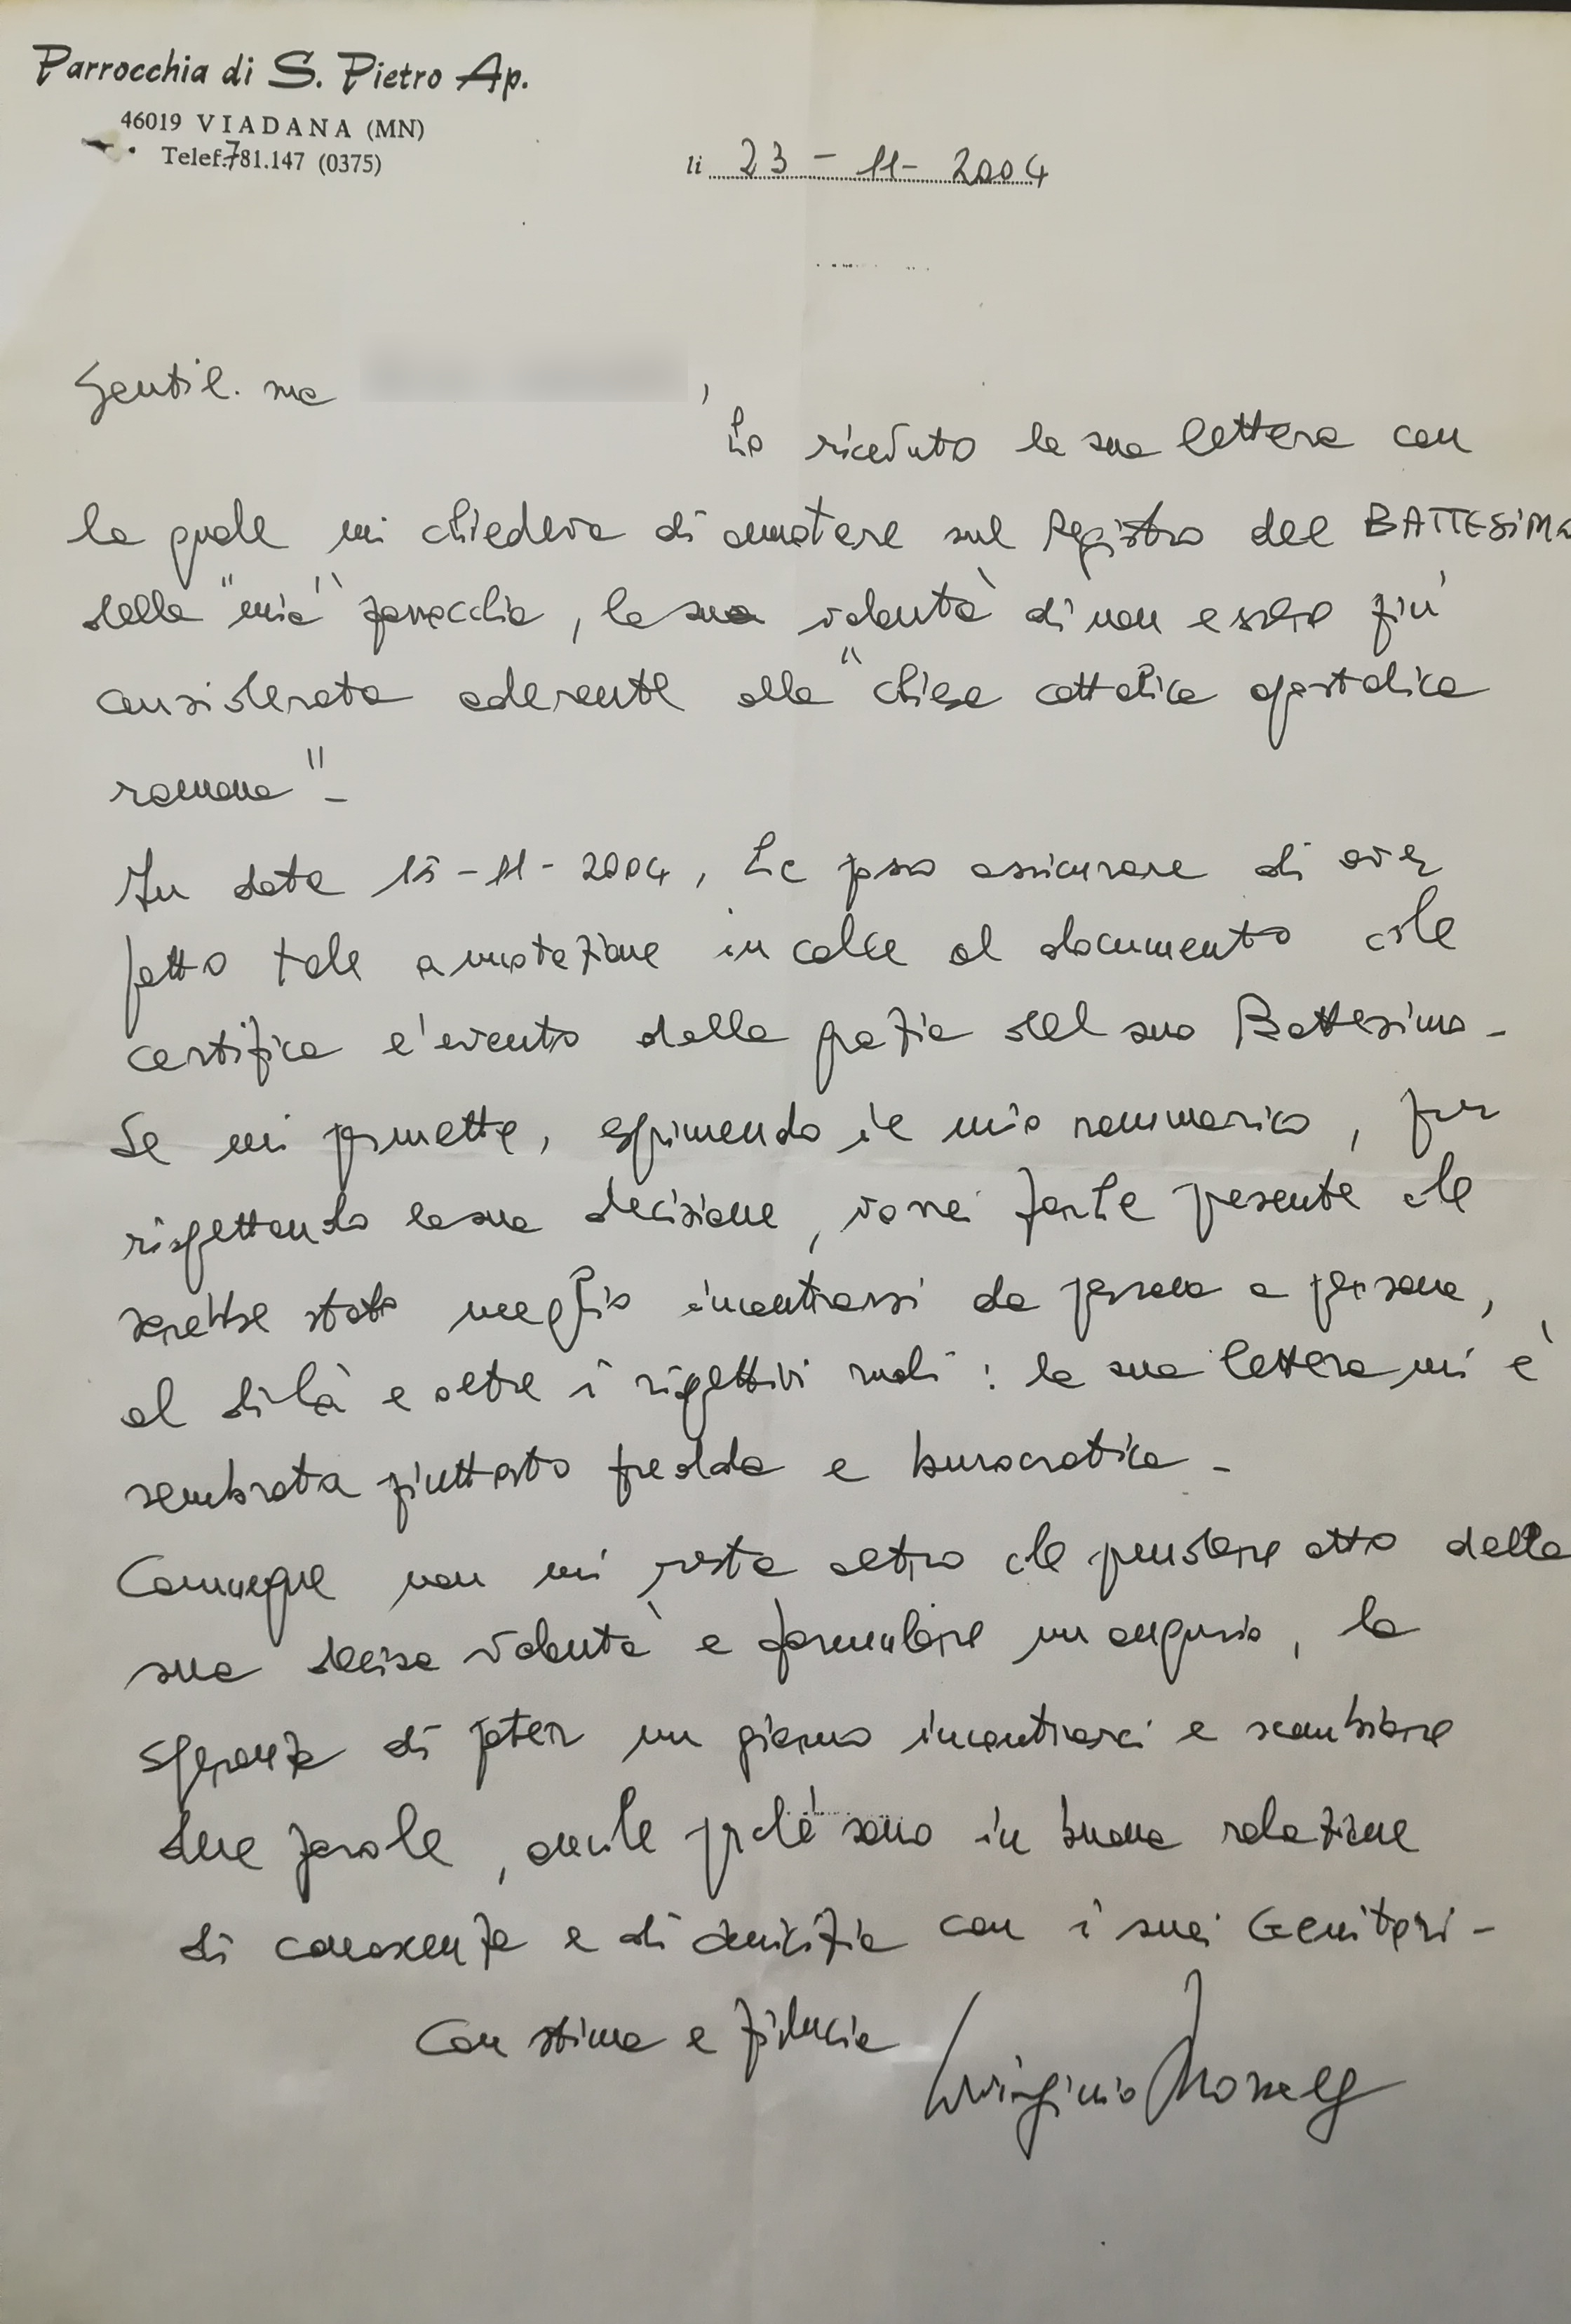 Parrocchia di S. Pietro Ap.
46019 VIADANA (MN)
Telef. 781.147 (0375)
li 23-11-2004
Gentil.ma ,
Ho ricevuto la sua lettera con
la quale mi chiedeva di annotare sul Registro del BATTESIMO
della "mia" parrocchia, la sua volontà di non essere più
considerata aderente alla "chiesa cattolica apostolica
romana"-
In data 15-11-2004, Le posso assicurare di aver
fatto tale annotazione in calce al documento che
certifica l'evento della grazia del suo Battesimo-
Se mi permette, esprimendo il mio rammarico, pur
rispettando la sua decisione, vorrei farLe presente che
sarebbe stato meglio incontrarsi da persona a persona,
al di là e oltre i rispettivi ruoli: la sua lettera mi è
sembrata piuttosto fredda e burocratica-
Comunque non mi resta altro che prendere atto della
sua decisa volontà e formulare un augurio, la
speranza di poter un giorno incontrarci e scambiare
due parole, anche perché sono in buona relazione
di conoscenza e di amicizia con i suoi Genitori-
Con stima e fiducia